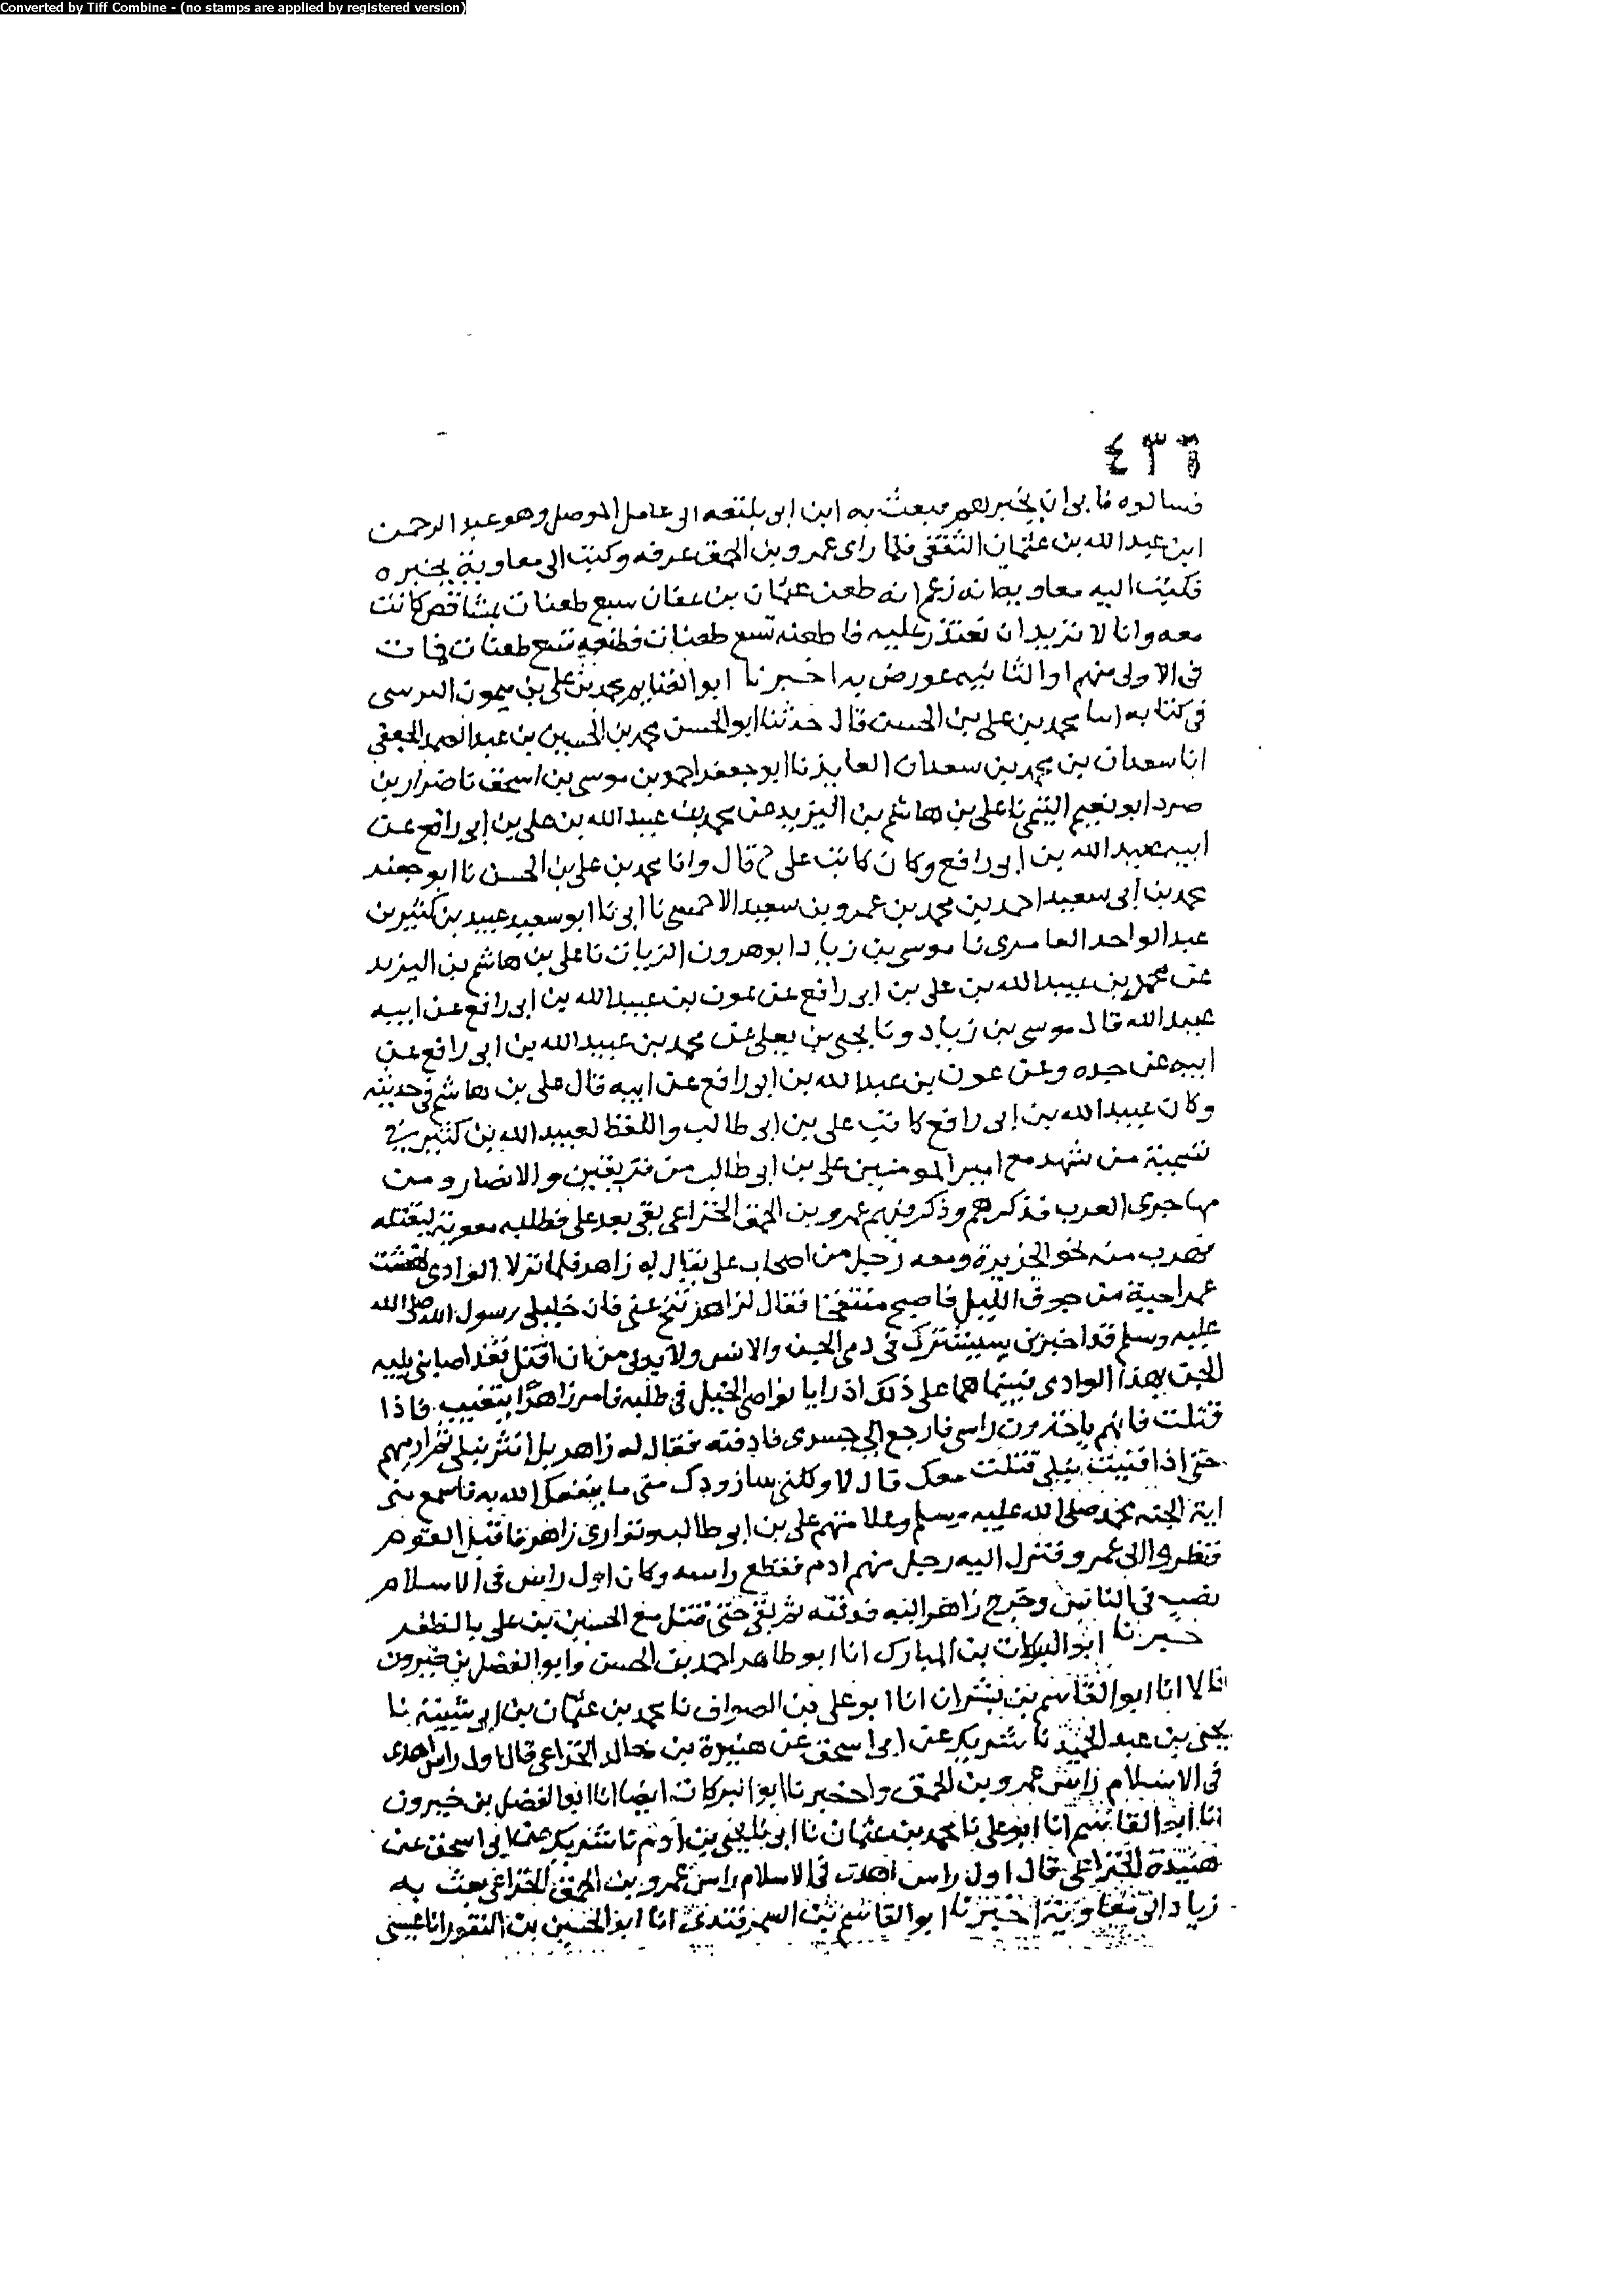 Converted by Tiff Combine - (no stamps are applied by registered version)
٤٣٦
فسالوه فابى ان يخبرهم فبعث به ابن ابى بلتعه الى عامل الموصل وهو عبد الرحمن
ابن عبد الله بن عثمان الثقفى فلما راى عمرو بن الحمق عرفه وكتب الى معاوية بخبره
فكتب اليه معاوية انه زعم انه طعن عثمان بن عفان سبع طعنات بمشاقص كانت
معه وانا لا نريد ان نعتدى عليه فاطعنه تسع طعنات فطعنه تسع طعنات فمات
فى الاولى منهم او الثانيه عورض به اخبرنا ابو الغنايم محمد بن على بن ميمون النرسى
فى كتابه انا محمد بن على بن الحسن قال حدثنا ابو الحسن محمد بن الحسين بن عبد الصمد الجعفى
انا سعدان بن محمد بن سعدان العابد نا ابو جعفر احمد بن موسى بن اسحق نا ضرار بن
صرد ابو نعيم التيمى نا على بن هاشم بن اليزيد عن محمد بن عبيد الله بن على بن ابى رافع عن
ابيه عبيد الله بن ابى رافع وكان كاتب على ح قال وانا محمد بن على بن الحسن نا ابو جعفر
محمد بن ابى سعيد احمد بن محمد بن عمرو بن سعيد الاحمسى نا ابى نا ابو سعيد عبيد بن كثير بن
عبد الواحد العامرى نا موسى بن زياد ابو هرون الزيات نا على بن هاشم بن اليزيد
عن محمد بن عبيد الله بن على بن ابى رافع عن عون بن عبيد الله بن ابى رافع عن ابيه
عبيد الله قال موسى بن زياد ونا يحيى بن يعلى عن محمد بن عبيد الله بن ابى رافع عن
ابيه عن جده وعن عون بن عبد الله بن ابى رافع عن ابيه قال على بن هاشم فى حديثه
وكان عبيد الله بن ابى رافع كاتب على بن ابى طالب واللفظ لعبيد الله بن كثير فى
تسمية من شهد مع امير المومنين على بن ابى طالب من قريش والانصار ومن
مهاجرى العرب فذكرهم وذكر فيهم عمرو بن الحمق الخزاعى بقى بعد على فطلبه معوية ليقتله
فهرب منه نحو الجزيرة ومعه رجل من اصحاب على يقال له زاهر فلما نزلا الوادى نهشت
عمرا حية من جوف الليل فاصبح منتفخا فقال لزاهر تنح عنى فان خليلى رسول الله صلى الله
عليه وسلم قد اخبرنى سيشترك فى دمى الجن والانس ولا بد لى من ان اقتل فقد اصابنى بلية
الجن بهذا الوادى فبينما هما على ذلك اذ رايا نواصى الخيل فى طلبه فامر زاهرا يتغيب فاذا
قتلت فانهم ياخذون راسى فارجع الى جسدى فادفنه فقال له زاهر بل انثر نبلى ثم اراميهم
حتى اذا فنيت نبلى قتلت معك قال لا ولكنى سازودك منى ما ينفعك الله به فاسمع منى
اية الجنه محمد صلى الله عليه وسلم وعلامتهم على بن ابى طالب وتوارى زاهر فاقبل القوم
فنظروا الى عمرو فنزل اليه رجل منهم ادم فقطع راسه وكان اول راس فى الاسلام
نصب فى الناس وخرج زاهر اليه فدفنه ثم بقى حتى قتل مع الحسين بن على بالطف
خبرنا ابو البركات بن المبارك انا ابو طاهر احمد بن الحسن وابو الفضل بن خيرون
قالا انا ابو القاسم بن بشران انا ابو على بن الصواف نا محمد بن عثمان بن ابى شيبة نا
يحيى بن عبد الحميد نا شريك عن ابى اسحق عن هنيدة بن خالد الخزاعى قال اول راس اهدى
فى الاسلام راس عمرو بن الحمق واخبرنا ابو البركات ايضا انا ابو الفضل بن خيرون
انا ابو القاسم انا ابو على نا محمد بن عثمان نا ابى نا يحيى بن ادم نا شريك عن ابى اسحق عن
هنيدة الخزاعى قال اول راس اهدى فى الاسلام راس عمرو بن الحمق الخزاعى بعث به
زياد الى معاوية اخبرنا ابو القاسم بن السمرقندى انا ابو الحسين بن النقور انا عيسى